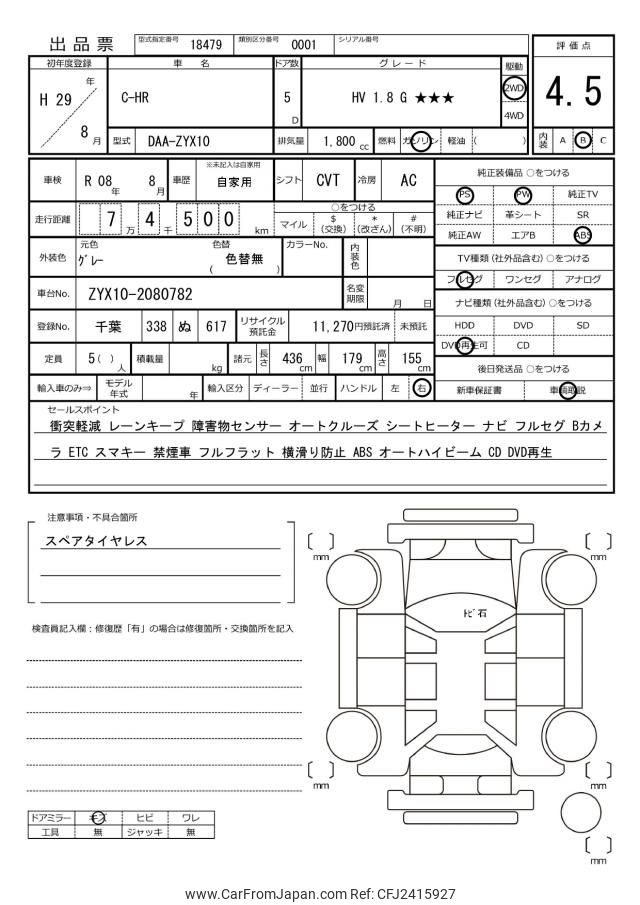 出品票 型式指定番号 18479 類別区分番号 0001 シリアル番号
評価点
4.5
内装 A B C
初年度登録 車名 ドア数 グレード 駆動
H 29 年 8 月
C-HR 5 D HV 1.8 G ★★★ 2WD 4WD
型式 DAA-ZYX10 排気量 1,800 cc 燃料 ガソリン 軽油 ( )
車検 R 08 年 8 月 車歴 ※未記入は自家用 自家用 シフト CVT 冷房 AC
走行距離 7 万 4 千 5 0 0 km
○をつける
マイル $(交換) *(改ざん) #(不明)
外装色 元色 グレー 色替 ( 色替無 ) カラーNo. 内装色
車台No. ZYX10-2080782 名変期限 月 日
登録No. 千葉 338 ぬ 617 リサイクル預託金 11,270円預託済 未預託
定員 5( ) 人 積載量 kg 諸元 長さ 436 cm 幅 179 cm 高さ 155 cm
輸入車のみ⇒ モデル年式 年 輸入区分 ディーラー 並行 ハンドル 左 右
純正装備品 ○をつける
PS PW 純正TV
純正ナビ 革シート SR
純正AW エアB ABS
TV種類(社外品含む) ○をつける
フルセグ ワンセグ アナログ
ナビ種類(社外品含む) ○をつける
HDD DVD SD
DVD再生可 CD
後日発送品 ○をつける
新車保証書 車輌取説
セールスポイント
衝突軽減 レーンキープ 障害物センサー オートクルーズ シートヒーター ナビ フルセグ Bカメ
ラ ETC スマキー 禁煙車 フルフラット 横滑り防止 ABS オートハイビーム CD DVD再生
注意事項・不具合箇所
スペアタイヤレス
検査員記入欄:修復歴「有」の場合は修復箇所・交換箇所を記入
mm
mm
ﾄﾋﾞ石
mm
mm
mm
ドアミラー キズ ヒビ ワレ
工具 無 ジャッキ 無
www.CarFromJapan.com Ref: CFJ2415927